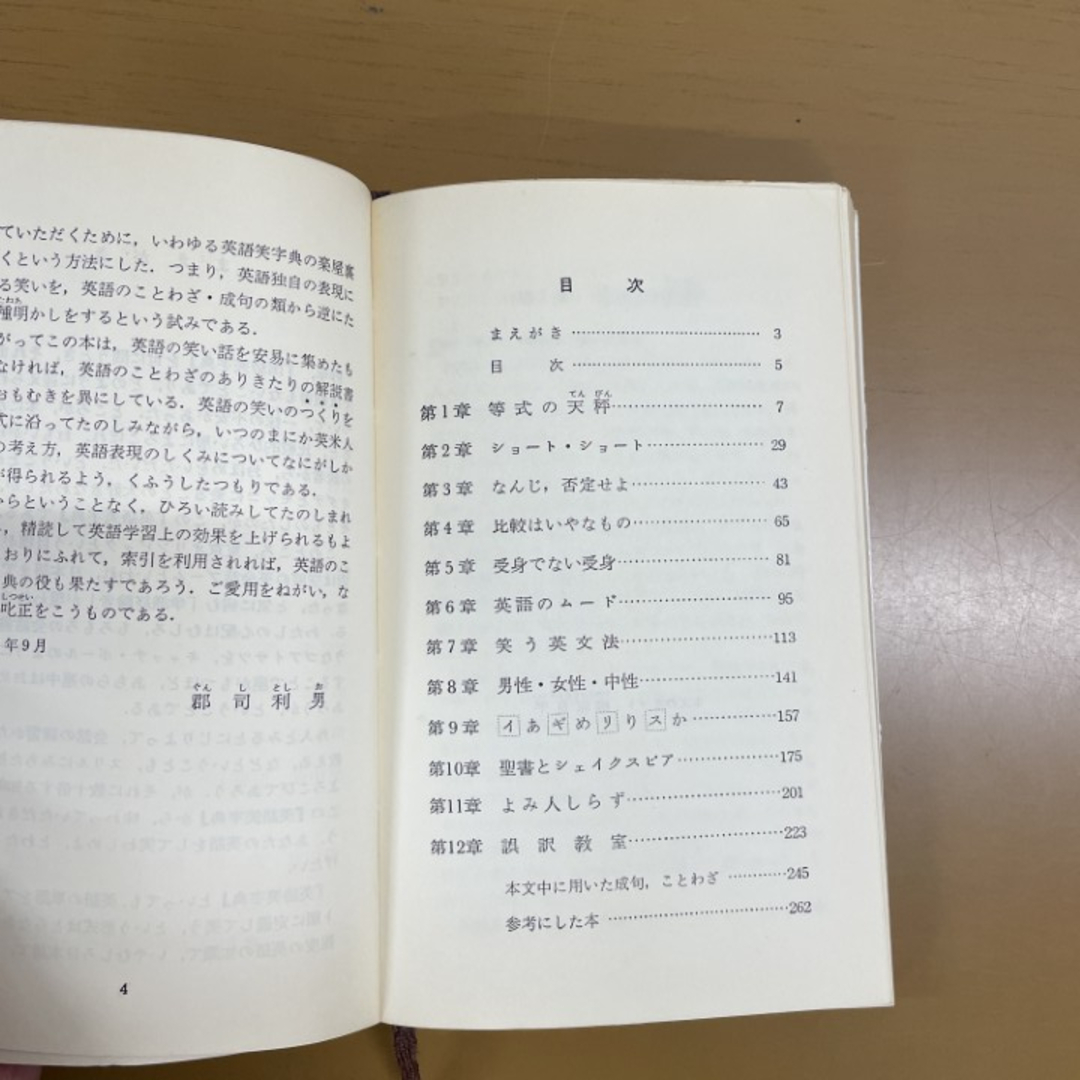 ていただくために，いわゆる英語笑字典の楽屋裏
くという方法にした．つまり，英語独自の表現に
る笑いを，英語のことわざ・成句の類から逆にた
種明かしをするという試みである．
がってこの本は，英語の笑い話を安易に集めたも
なければ，英語のことわざのありきたりの解説書
おもむきを異にしている．英語の笑いのつくりを
式に沿ってたのしみながら，いつのまにか英米人
の考え方，英語表現のしくみについてなにがしか
が得られるよう，くふうしたつもりである．
からということなく，ひろい読みしてたのしまれ
，精読して英語学習上の効果を上げられるもよ
おりにふれて，索引を利用されれば，英語のこ
典の役も果たすであろう．ご愛用をねがい，な
叱正をこうものである．
年9月
郡司利男
4
目次
まえがき 3
目次 5
第1章 等式の天秤 7
第2章 ショート・ショート 29
第3章 なんじ，否定せよ 43
第4章 比較はいやなもの 65
第5章 受身でない受身 81
第6章 英語のムード 95
第7章 笑う英文法 113
第8章 男性・女性・中性 141
第9章 イあギめリりスか 157
第10章 聖書とシェイクスピア 175
第11章 よみ人しらず 201
第12章 誤訳教室 223
本文中に用いた成句，ことわざ 245
参考にした本 262